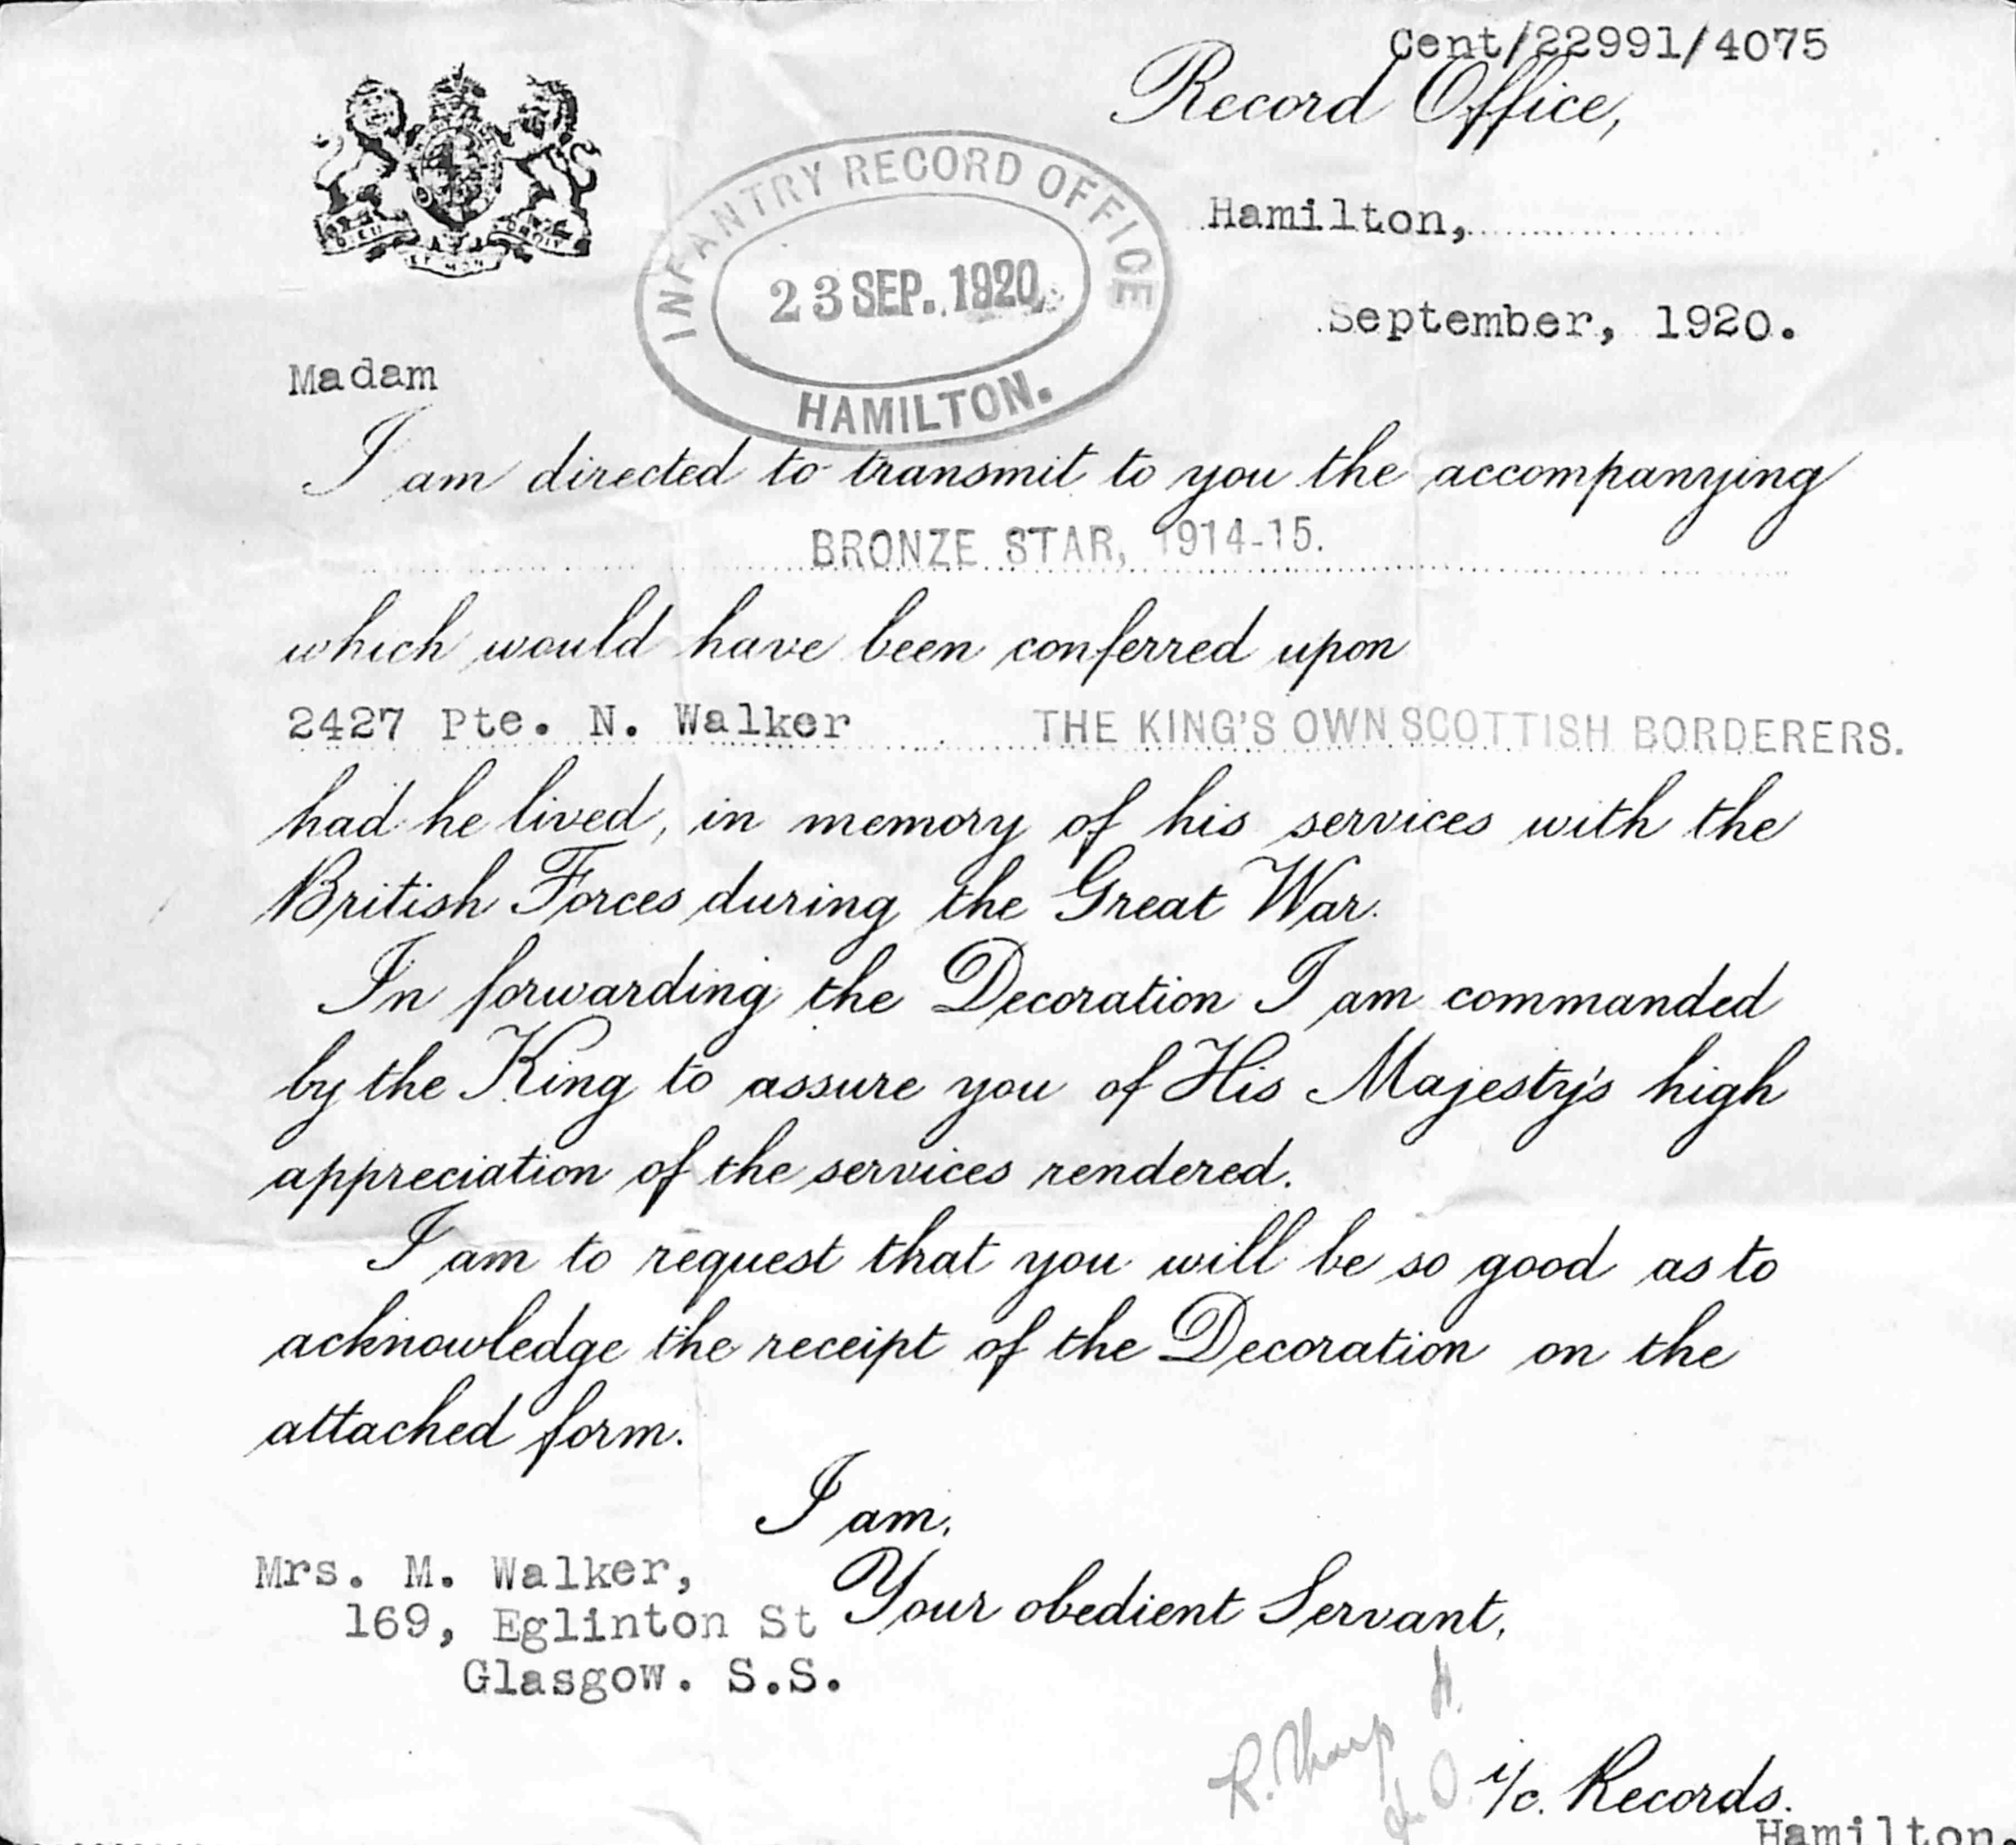 Cent/22991/4075
Record Office,
INFANTRY RECORD OFFICE
23 SEP. 1920
HAMILTON.
Hamilton,
September, 1920.
Madam
I am directed to transmit to you the accompanying
BRONZE STAR, 1914-15.
which would have been conferred upon
2427 Pte. N. Walker THE KING'S OWN SCOTTISH BORDERERS.
had he lived, in memory of his services with the
British Forces during the Great War.
In forwarding the Decoration I am commanded
by the King to assure you of His Majesty's high
appreciation of the services rendered.
I am to request that you will be so good as to
acknowledge the receipt of the Decoration on the
attached form.
I am,
Your obedient Servant,
Mrs. M. Walker,
169, Eglinton St
Glasgow. S.S.
R. Sharp
i/c. Records.
Hamilton